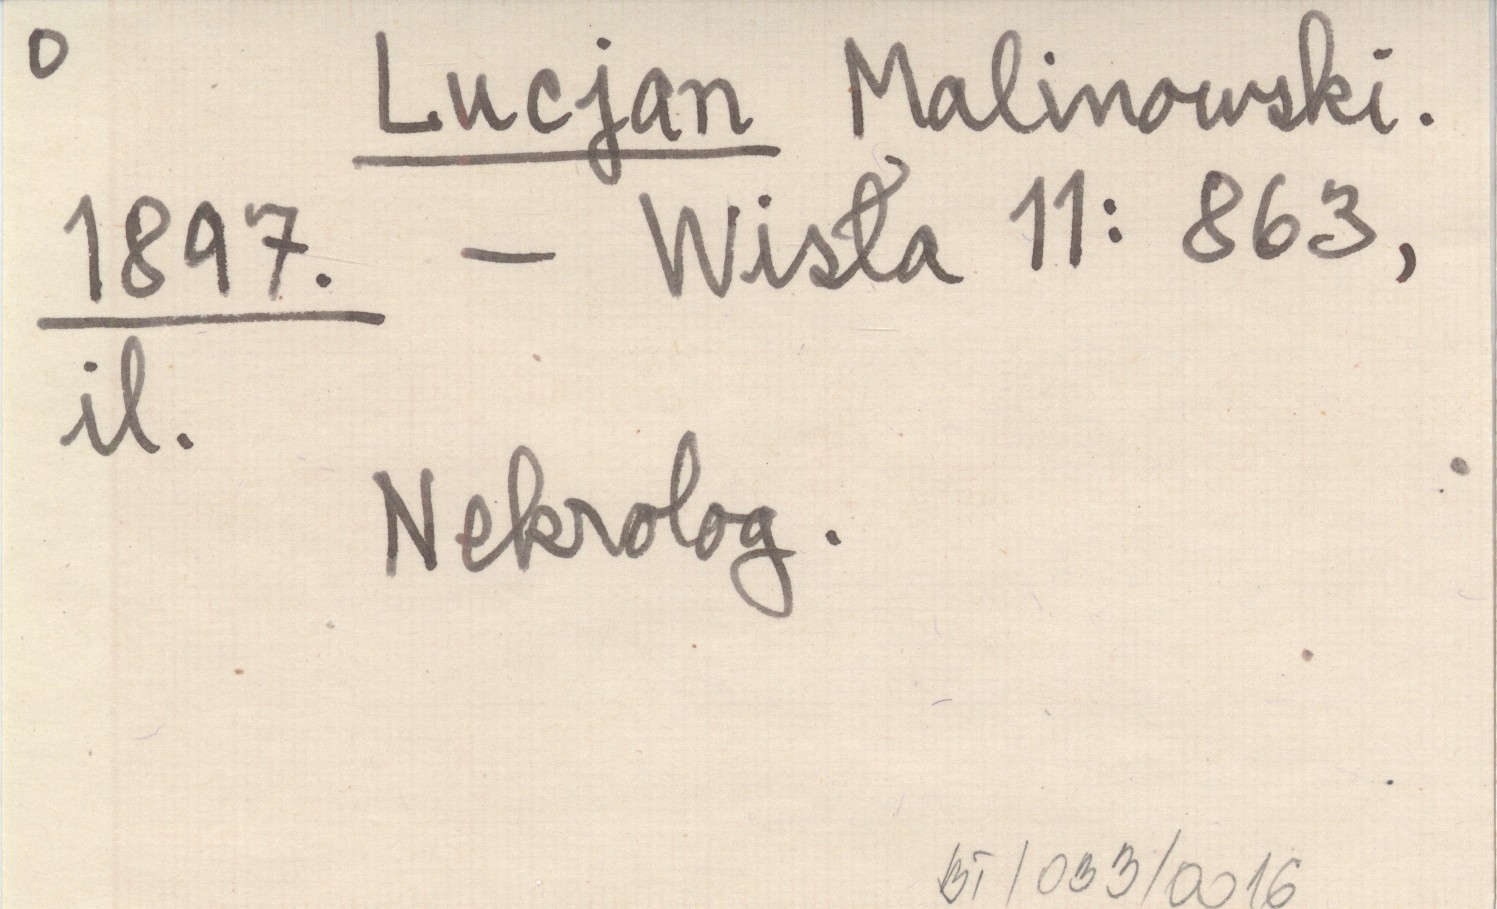 0 Lucjan Malinowski.
1897. – Wisła 11: 863,
il.
Nekrolog.
BI/033/0016